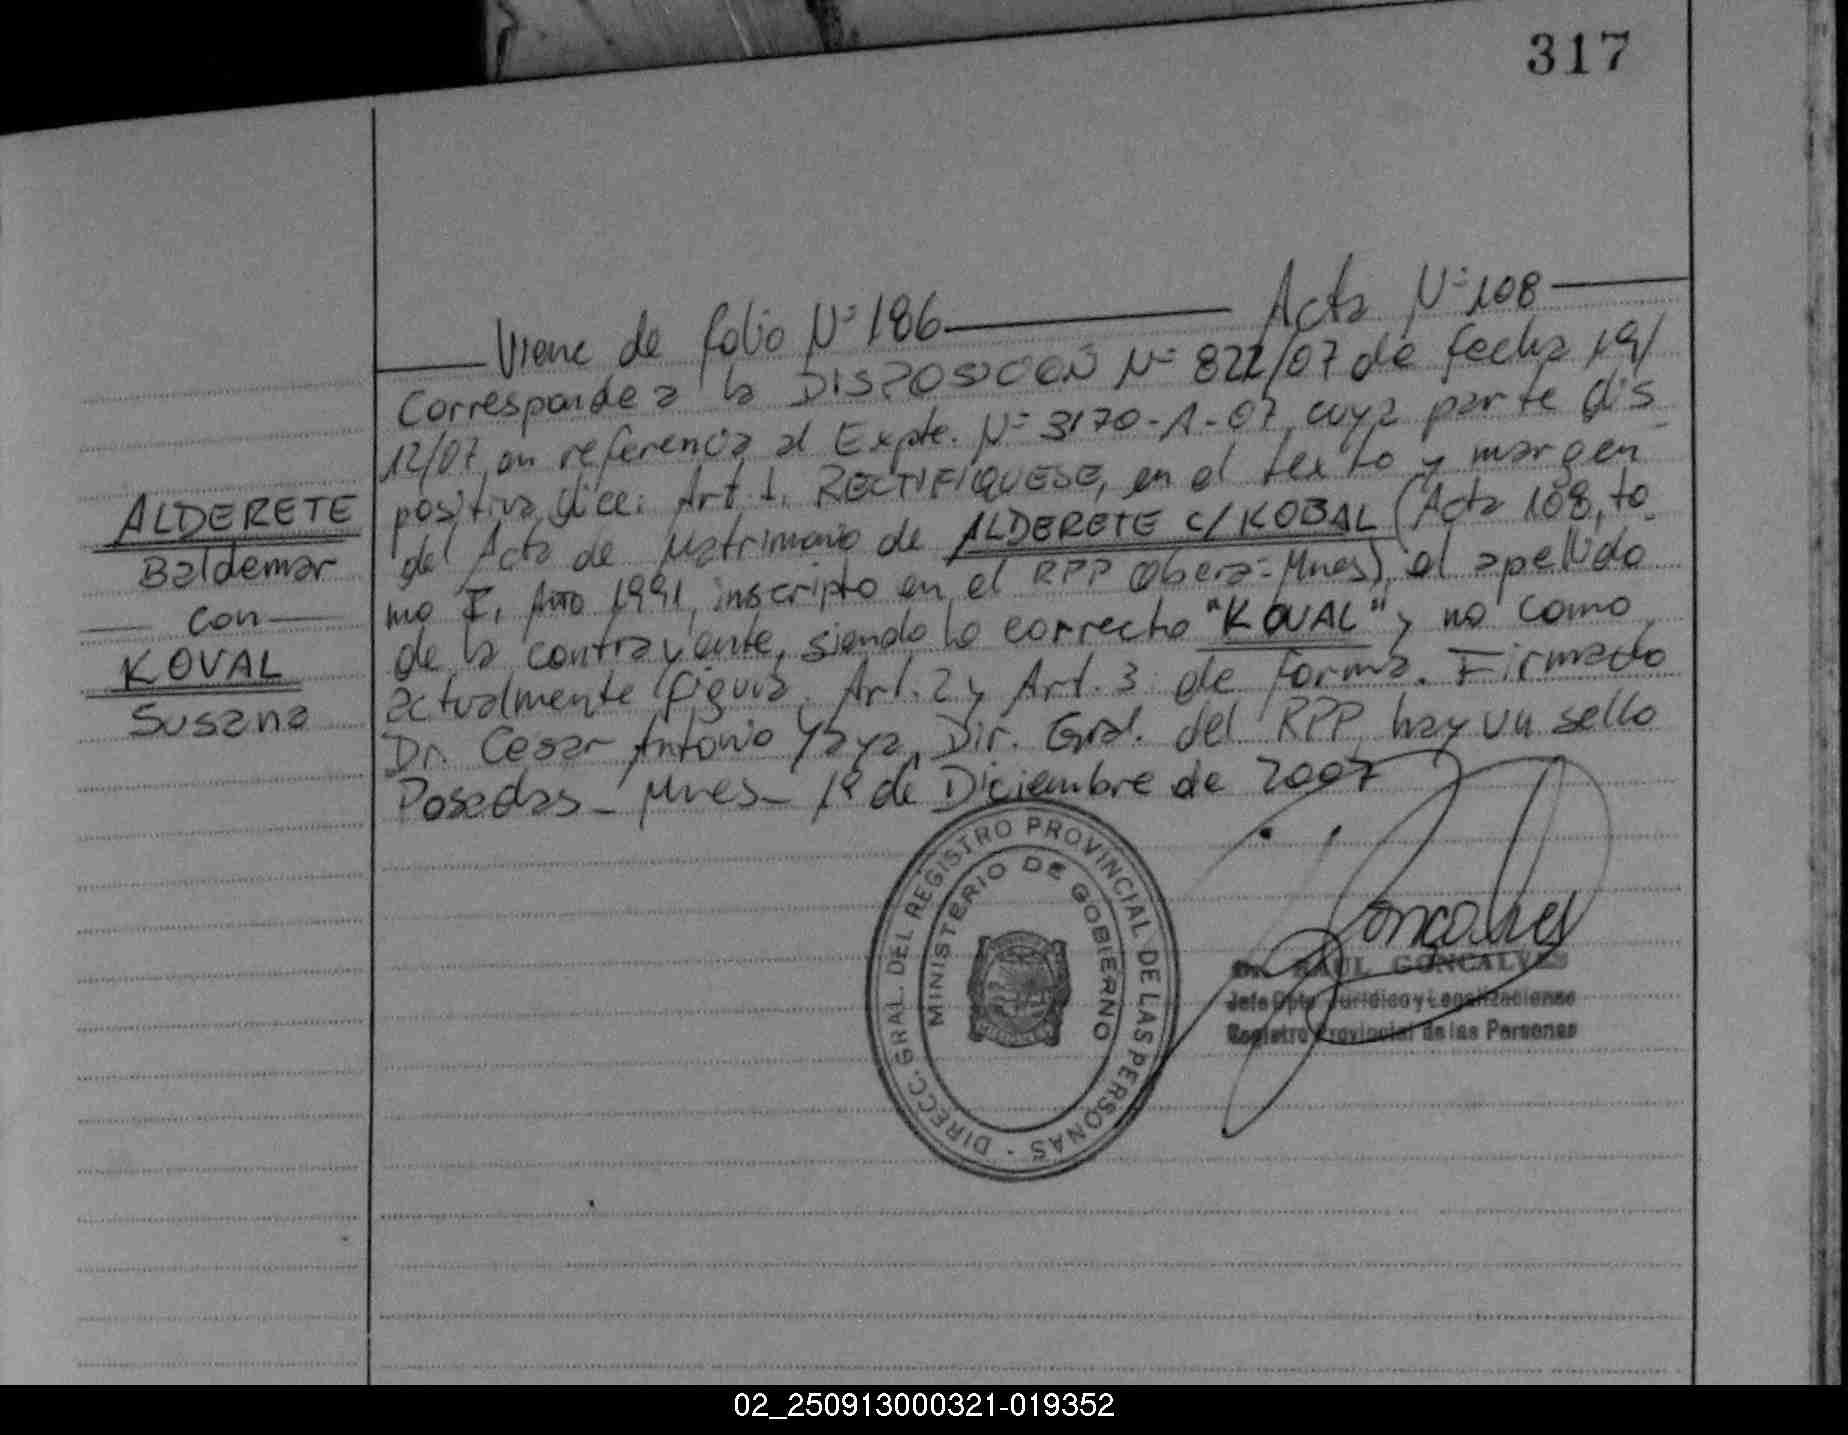 317
Viene de folio Nº 186 Acta Nº 108
Corresponde a la DISPOSICION Nº 822/07 de fecha 19/
12/07, en referencia al Expte. Nº 3170-A-07, cuya parte dis
positiva dice: Art. 1. RECTIFIQUESE, en el texto y margen
del Acta de Matrimonio de ALDERETE C/ KOBAL (Acta 108, to
mo I, Año 1991, inscripto en el RPP Obera-Mnes), el apellido
de la contrayente, siendo lo correcto "KOVAL" y no como
actualmente figura. Art. 2 y Art. 3: de forma. Firmado
Dr. Cesar Antonio Yaya, Dir. Gral. del RPP, hay un sello
Posadas - Mnes - de Diciembre de 2007
ALDERETE
Baldemar
con
KOVAL
Susana
DIRECC. GRAL. DEL REGISTRO PROVINCIAL DE LAS PERSONAS
MINISTERIO DE GOBIERNO
Goncalves
Dr. RAUL GONCALVES
Jefe Dpto Juridico y Legalizaciones
Registro Provincial de las Personas
02_250913000321-019352